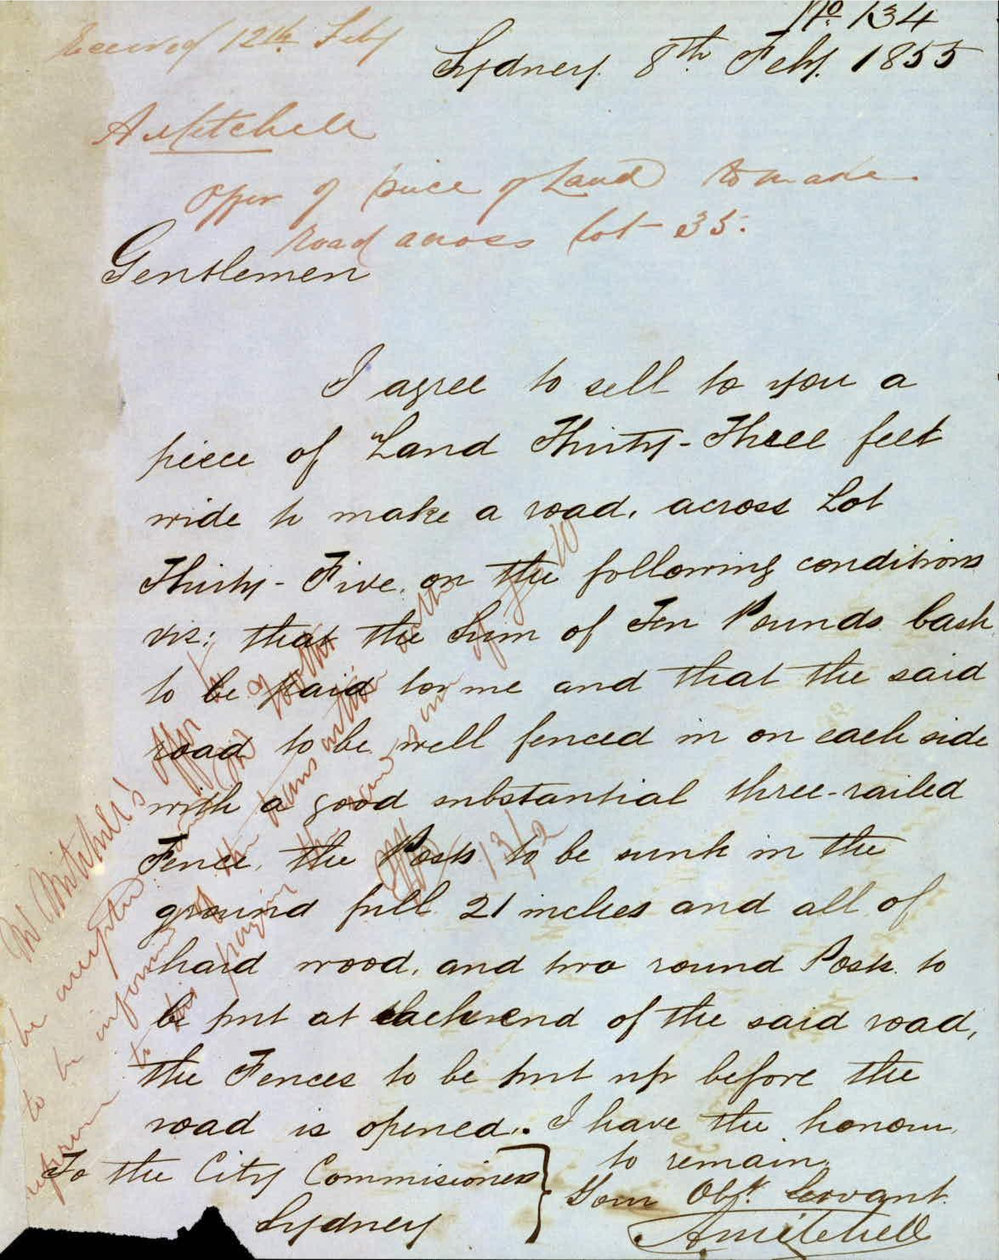 No 134
Received 12th Feby
Sydney. 8th Feby. 1855
A Mitchell
Offer of piece of Land to make
Road across lot 35.
Gentlemen
I agree to sell to you a
piece of Land Thirty-Three feet
wide to make a road, across Lot
Thirty-Five, on the following conditions
viz: that the Sum of Ten Pounds Cash
to be paid to me and that the said
road to be well fenced in on each side
with a good substantial three-railed
Fence, the Posts to be sunk in the
ground full 21 inches and all of
hard wood, and two round Posts to
be put at each end of the said road,
the Fences to be put up before the
road is opened. I have the honour
to remain
Your Obt. Servant
A Mitchell
To the City Commisioners
Sydney
Mr Mitchell's offer to
be accepted and
to be informed
13/2